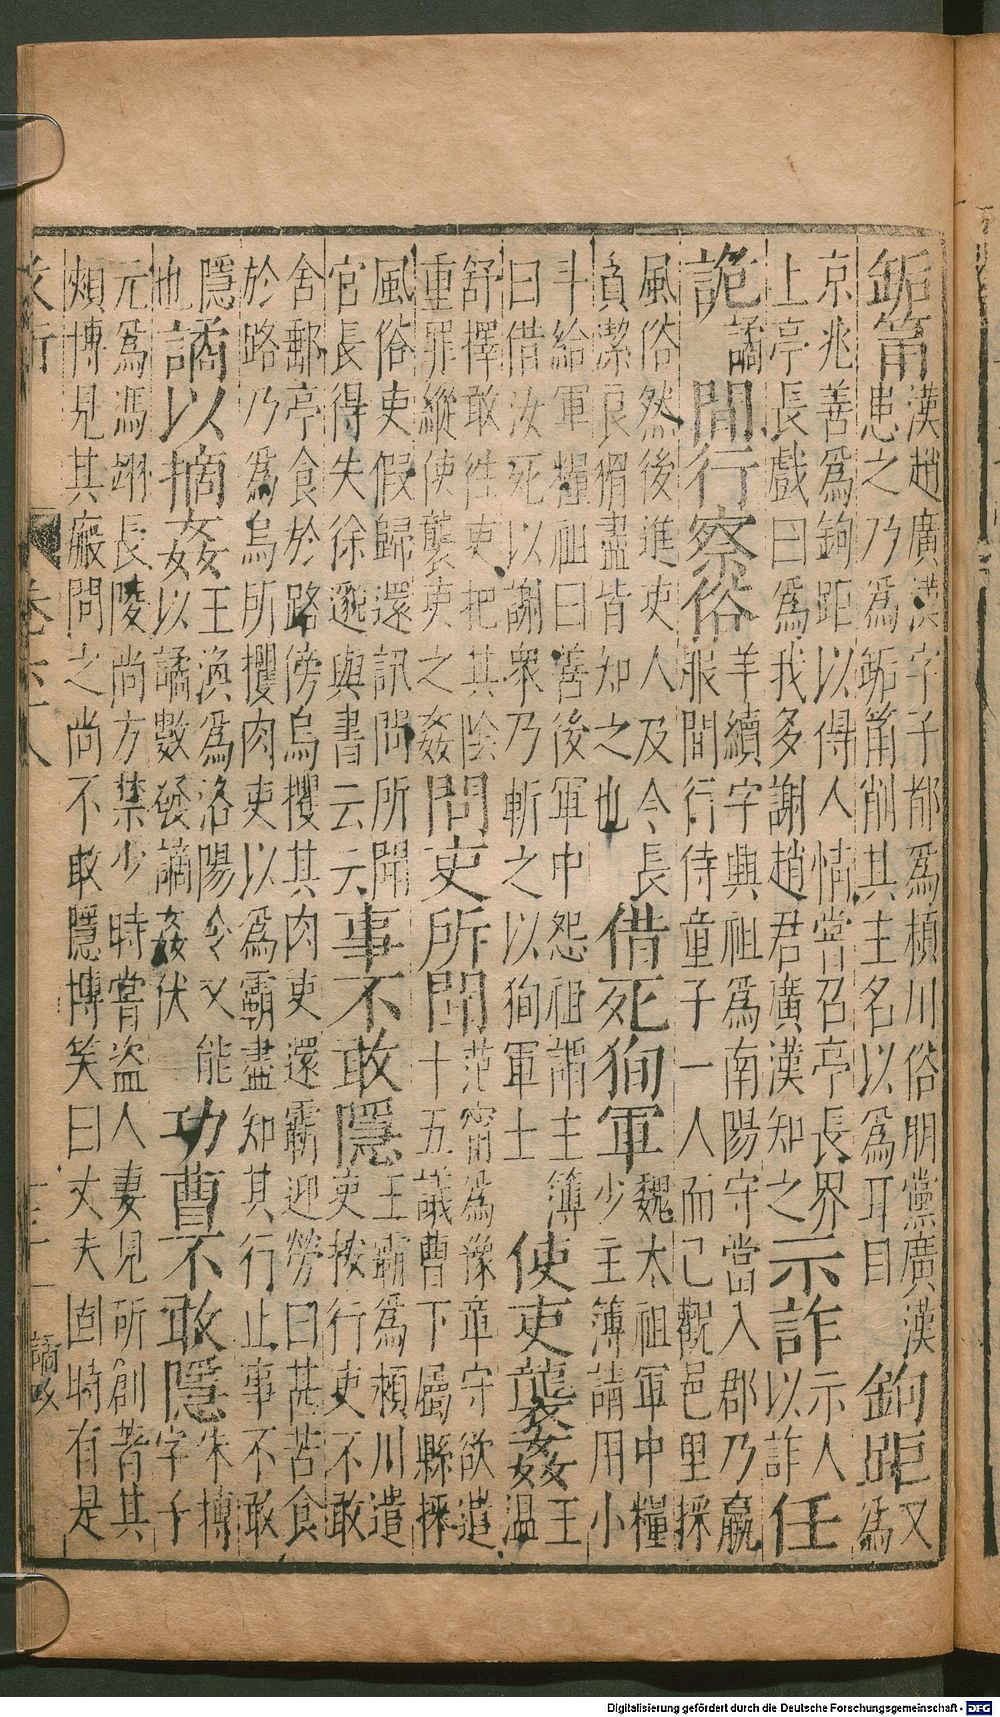 缿筩 漢趙廣漢字子都爲潁川俗朋黨廣漢患之乃爲缿筩削其主名以爲耳目 鉤距 又爲
京兆善爲鉤距以得人情嘗召亭長界上亭長戲曰爲我多謝趙君廣漢知之 示詐 示人以詐 任
詭 譎 間行察俗 羊續字興祖爲南陽守當入郡乃羸服間行侍童子一人而已觀邑里採
風俗然後進吏人及令長貪潔良猾盡皆知之也 借死狥軍 魏太祖軍中糧少主簿請用小
斗給軍糧祖曰善後軍中怨祖謂主簿曰借汝死以謝衆乃斬之以狥軍士 使吏襲姦 王温
舒擇敢徃吏把其陰重罪縱使襲吏之姦 問吏所聞 范甯爲豫章守欲遣十五議曹下屬縣採
風俗吏假歸還訊問所聞官長得失徐邈與書云云 事不敢隱 王霸爲潁川遣吏按行吏不敢
舍郵亭食於路傍烏攫其肉吏還霸迎勞曰甚苦食於路乃爲烏所攫肉吏以爲霸盡知其行止事不敢
隱也 譎以摘姦 王渙爲洛陽令又能以譎數發讁姦伏 功曹不敢隱 朱博字子
元爲馮翊長陵尚方禁少時嘗盜人妻見所創著其頰博見其瘢問之尚不敢隱博笑曰丈夫固時有是
卷六十八
Digitalisierung gefördert durch die Deutsche Forschungsgemeinschaft - DFG